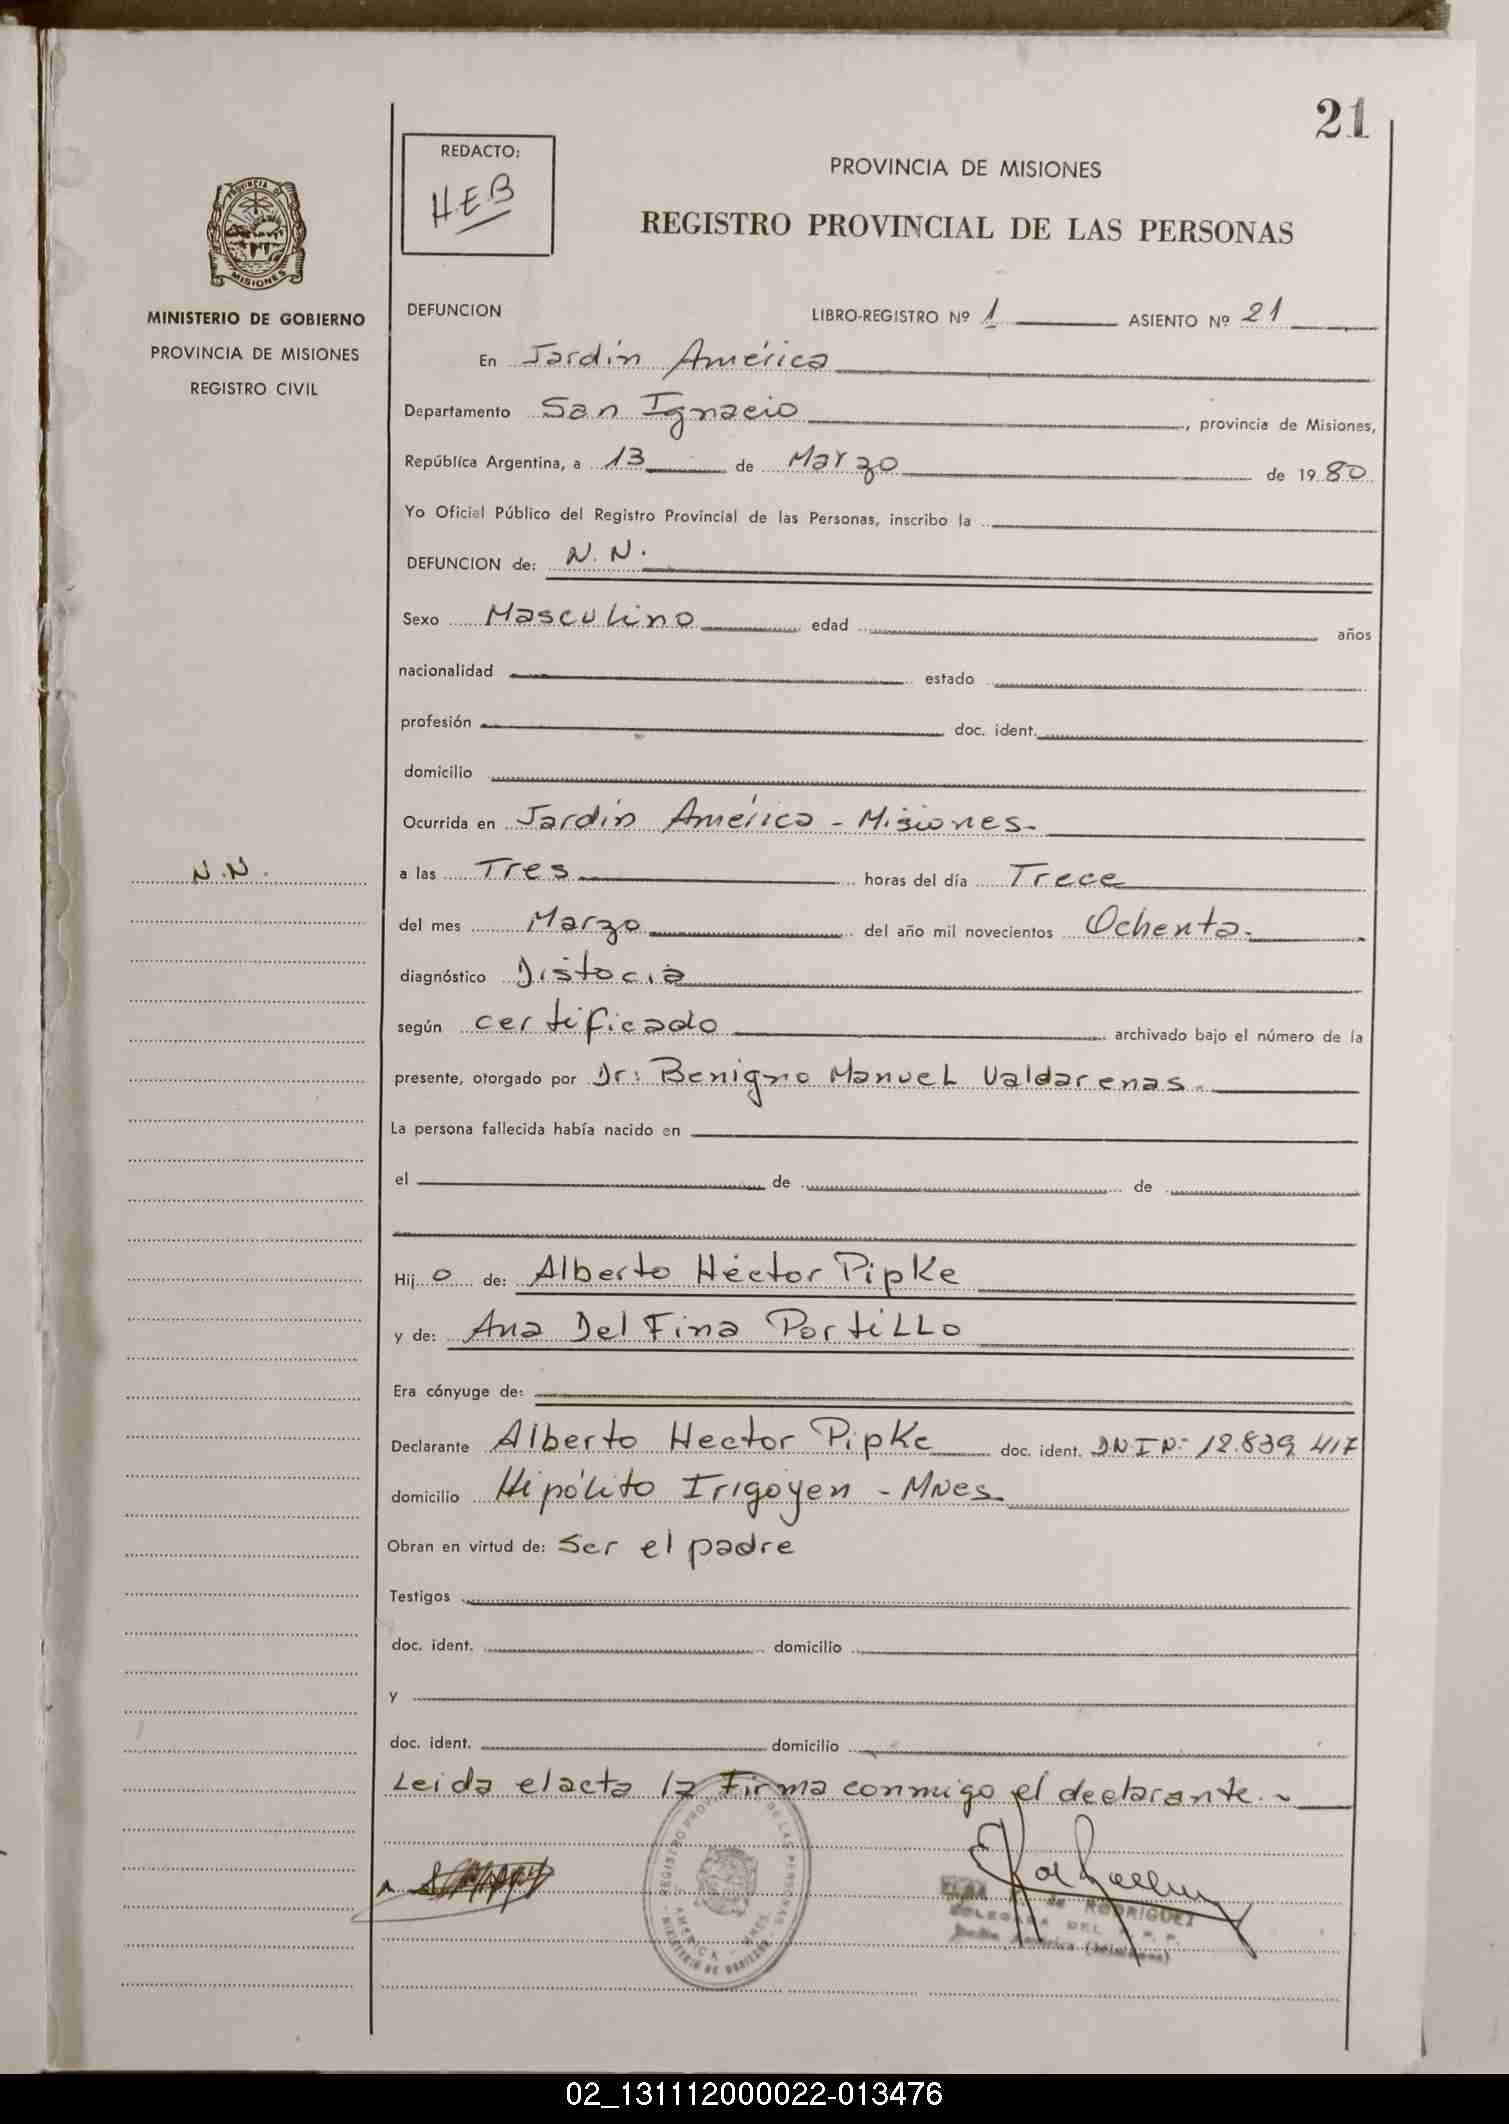 21
REDACTO:
H.E.B
PROVINCIA DE MISIONES
REGISTRO PROVINCIAL DE LAS PERSONAS
PROVINCIA DE
MISIONES
MINISTERIO DE GOBIERNO
PROVINCIA DE MISIONES
REGISTRO CIVIL
DEFUNCION LIBRO-REGISTRO Nº 1 ASIENTO Nº 21
En Jardín América
Departamento San Ignacio, provincia de Misiones,
República Argentina, a 13 de Marzo de 1980
Yo Oficial Público del Registro Provincial de las Personas, inscribo la
DEFUNCION de: N. N.
Sexo Masculino edad años
nacionalidad estado
profesión doc. ident.
domicilio
Ocurrida en Jardín América - Misiones-
N.N. a las Tres horas del día Trece
del mes Marzo del año mil novecientos Ochenta-
diagnóstico Distocia
según certificado archivado bajo el número de la
presente, otorgado por Dr: Benigno Manuel Valdarenas-
La persona fallecida había nacido en
el de de
Hij o de: Alberto Héctor Pipke
y de: Ana Del Fina Portillo
Era cónyuge de:
Declarante Alberto Hector Pipke doc. ident. DNI Nº 12.839.417
domicilio Hipólito Irigoyen - Mnes
Obran en virtud de: Ser el padre
Testigos
doc. ident. domicilio
y
doc. ident. domicilio
Leida el acta la Firma conmigo el declarante.-
REGISTRO PROVINCIAL DE LAS PERSONAS
AMERICA - MNES.
MINISTERIO DE GOBIERNO
ELBA DE RODRIGUEZ
DELEGADA DEL R. P. P.
Jardín América (Misiones)
02_131112000022-013476